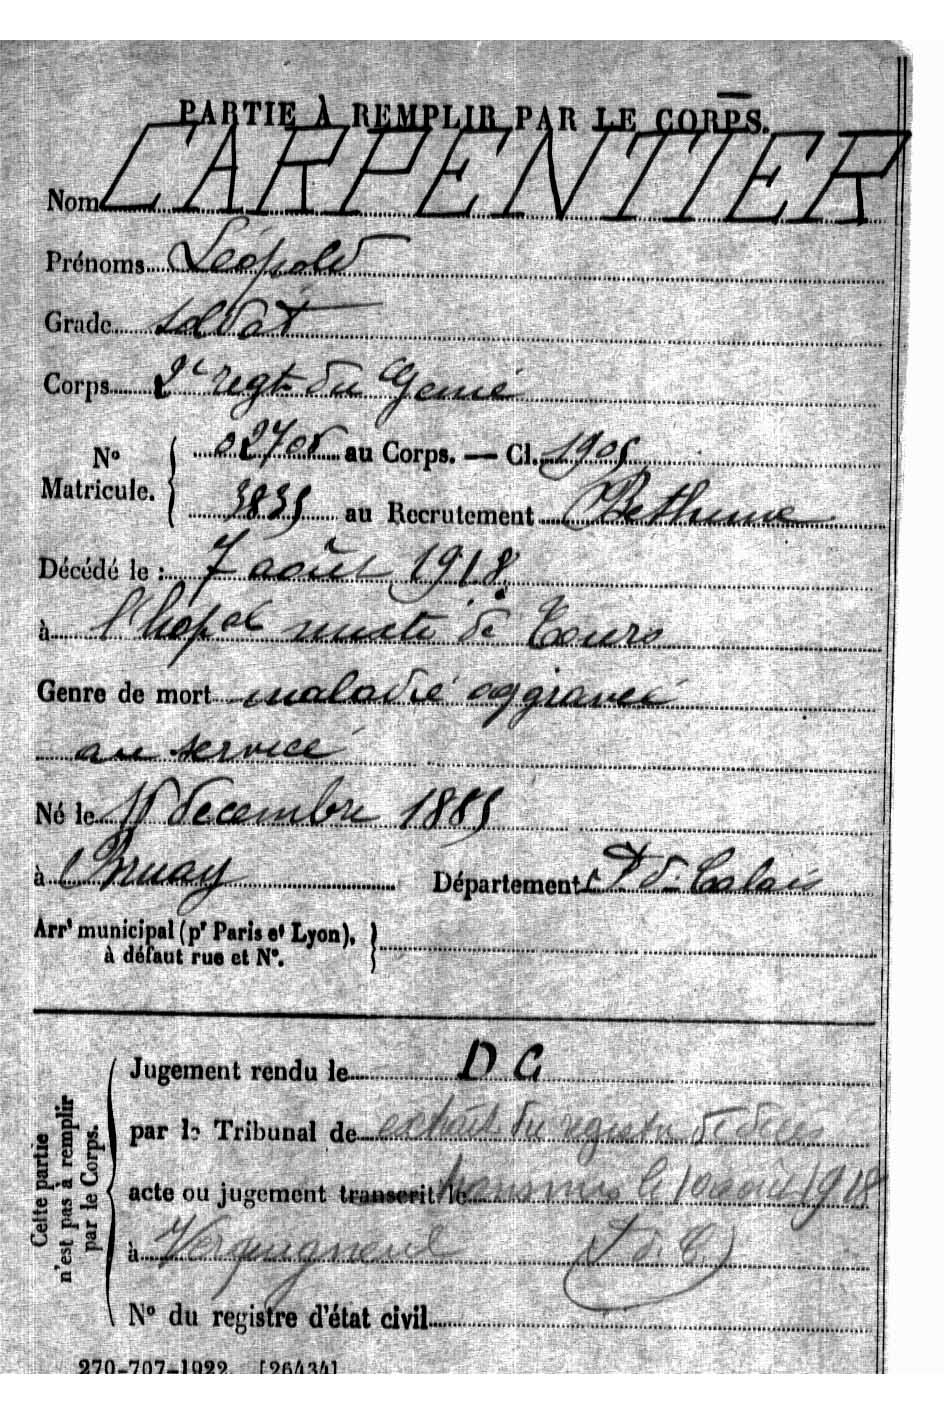 PARTIE À REMPLIR PAR LE CORPS.
Nom CARPENTIER
Prénoms Léopold
Grade soldat
Corps 2e regt du Génie
No Matricule. { 02708 au Corps. — Cl. 1905
3835 au Recrutement Béthune
Décédé le : 7 août 1918
à l'hopal mixte de Tours
Genre de mort maladie aggravée
au service
Né le décembre 1885
à Bruay Département P. d. Calais
Arrt municipal (pr Paris et Lyon), }
à défaut rue et No.
Cette partie
n'est pas à remplir
par le Corps.
Jugement rendu le DC
par le Tribunal de extrait du registre de décès
acte ou jugement transcrit le transmis le 10 août 1918
à Verquigneul (P. d. C.)
No du registre d'état civil
270-707-1922. [26434]